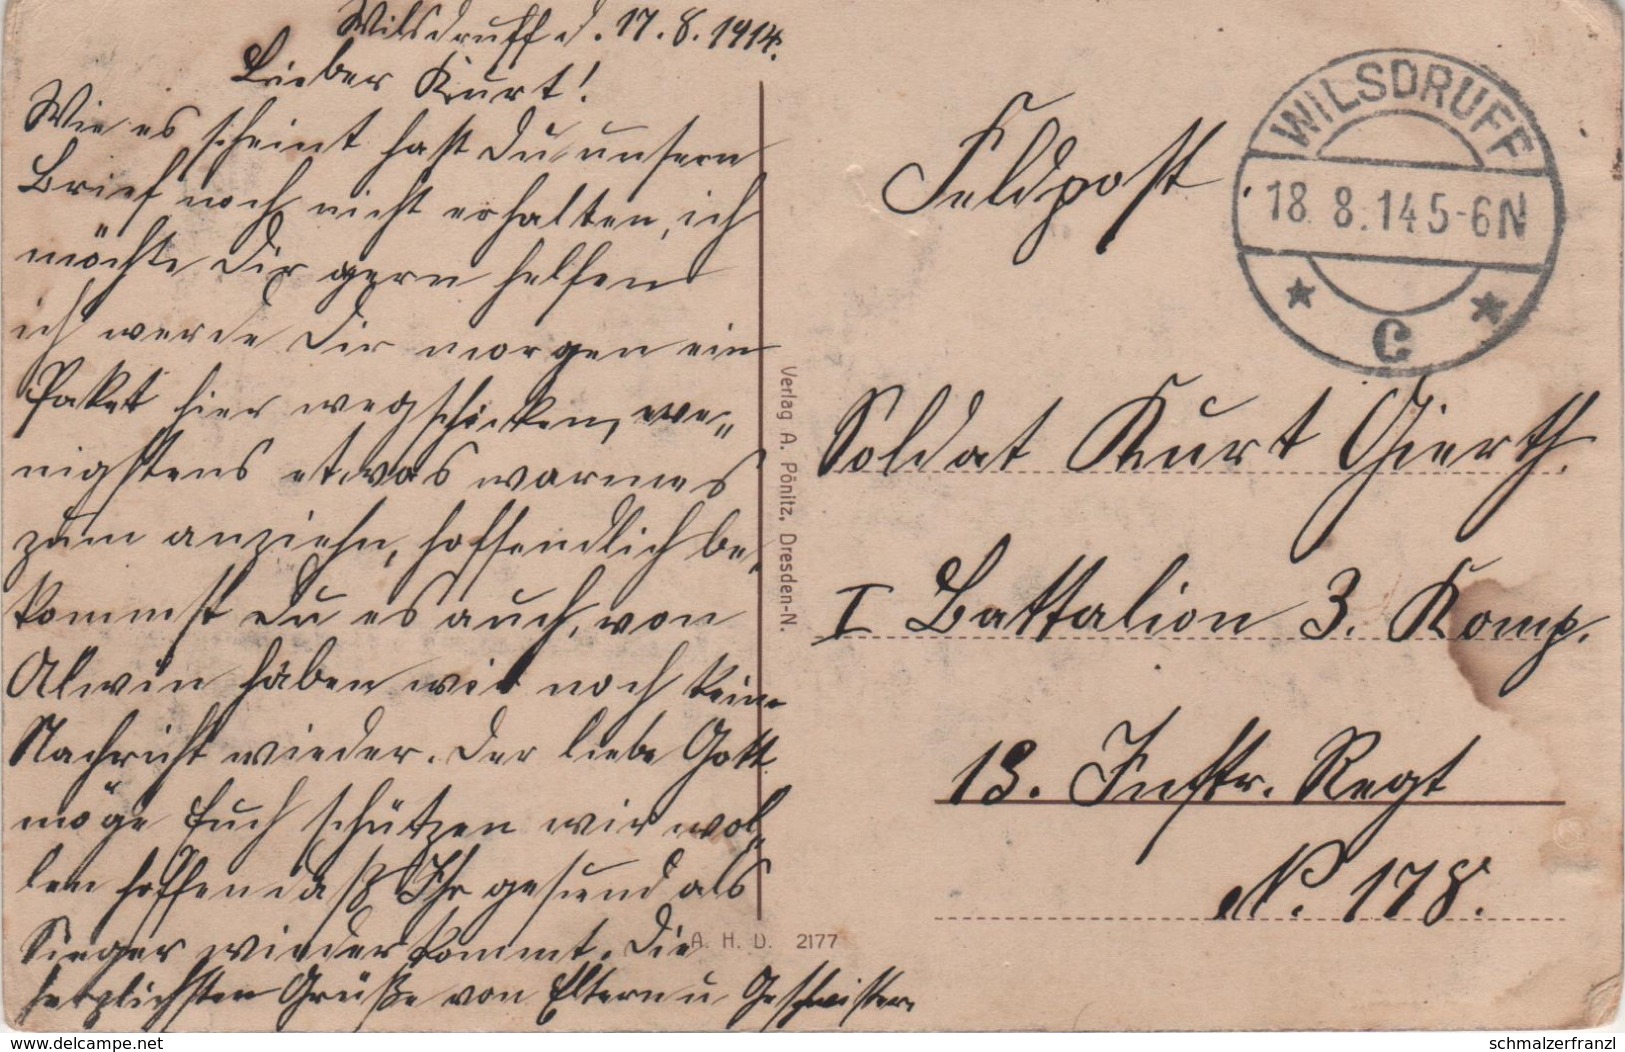 Wilsdruff d. 17.8.1914.
Lieber Kurt!
Wie es scheint hast Du unsern
Brief noch nicht erhalten, ich
möchte Dir gern helfen
ich werde Dir morgen ein
Paket hier wegschicken, we„
nigstens etwas warmes
zum anziehn, hoffendlich be„
kommst Du es auch, von
Alwin haben wir noch keine
Nachricht wieder. Der liebe Gott
möge Euch schützen wir wol„
len hoffen daß Ihr gesund als
Sieger wieder kommt. Die
herzlichsten Grüße von Eltern u Geschwister.
Verlag A. Pönitz, Dresden-N.
A. H. D. 2177
Feldpost.
WILSDRUFF
18.8.14 5-6N
* C *
Soldat Kurt Gierth.
I Battalion 3. Komp.
13. Inftr. Regt
N°. 178.
https://www.delcampe.net
schmalzerfranzl